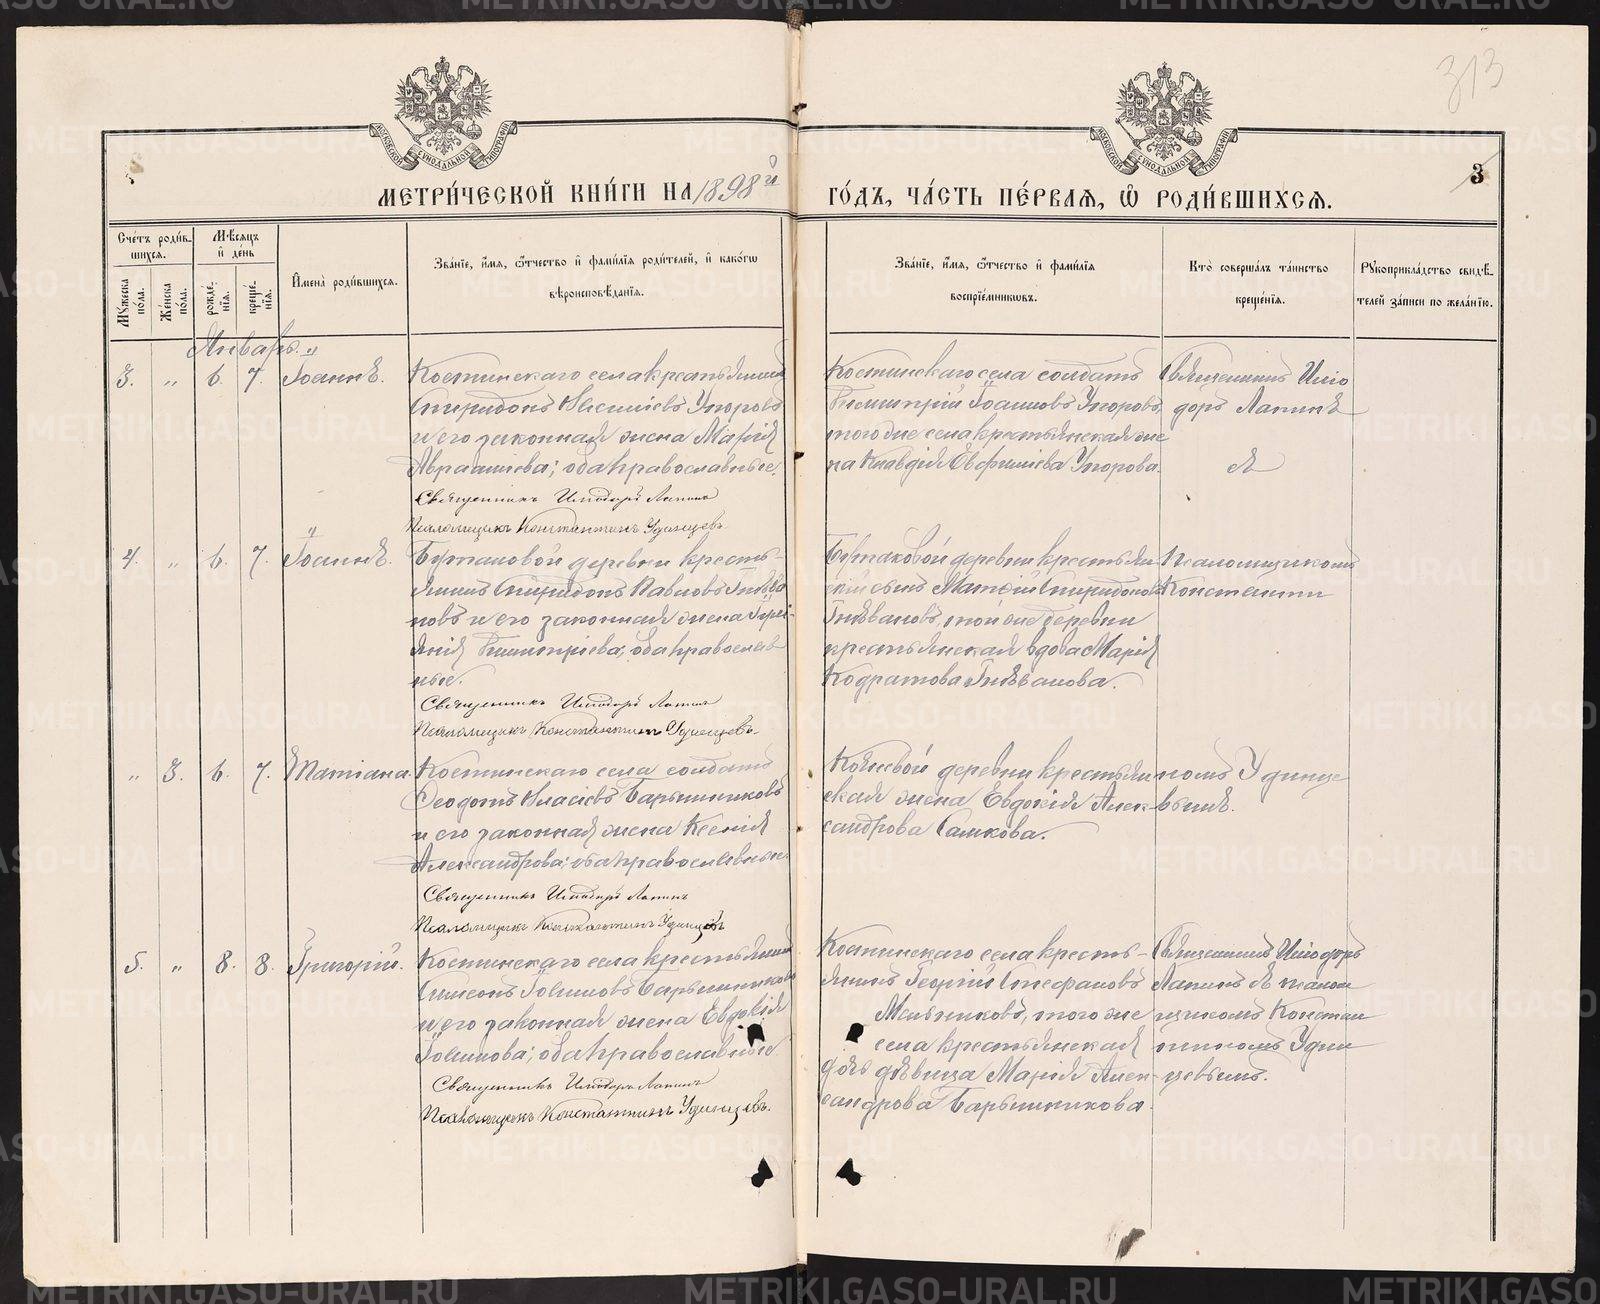 313
МОСКОВСКОЙ СУНОДАЛЬНОЙ ТИПОГРАФІИ
МОСКОВСКОЙ СУНОДАЛЬНОЙ ТИПОГРАФІИ
МЕТРИ́ЧЕСКОЙ КНИ́ГИ НА 1898й
ГО́ДЪ, ЧА́СТЬ ПЕ́РВАЯ, Ѽ РОДИ́ВШИХСЯ.
3
Сче́тъ роди́в-
шихся.
Мѣ́сяцъ
и҆ де́нь
Мꙋ́жеска
по́ла.
Же́нска
по́ла.
рожде́-
нїѧ.
креще́-
нїѧ.
И҆мена̀ роди́вшихся.
Зва́нїе, и҆́мѧ, ѻ҆́тчество и҆ фами́лїѧ роди́телей, и҆ како́гѡ
вѣроисповѣ́данїѧ.
Зва́нїе, и҆́мѧ, ѻ҆́тчество и҆ фами́лїѧ
воспрїе́мникѡвъ.
Кто̀ соверша́лъ та́инство
креще́нїѧ.
Рꙋкоприкла́дство свидѣ́-
телей за́писи по жела́нїю.
Январь.
3. " 6. 7. Іоаннъ.
Костинскаго села крестьянинъ
Спиридонъ Власіевъ Упоровъ
и его законная жена Марія
Авраамиева; оба православные.
Священникъ Исидоръ Лапинъ
Псаломщикъ Константинъ Удинцевъ.
Костинскаго села солдатъ
Димитрій Іоанновъ Упоровъ,
того же села крестьянская же
на Клавдія Евфиміева Упорова.
Священникъ Исио
доръ Лапинъ
съ
4. " 6. 7. Іоаннъ.
Бутаковой деревни кресть-
янинъ Спиридонъ Павловъ Гнѣва
новъ и его законная жена
Димитріева; оба православ
ные.
Священникъ Исидоръ Лапинъ
Псаломщикъ Константинъ Удинцевъ.
Бутаковой деревни крестьян
скій сынъ Матѳій Спиридоновъ
Гнѣвановъ, той же деревни
крестьянская вдова Марія
Кодратова Гнѣванова.
Псаломщикомъ
Константи
" 3. 6. 7. Татіана.
Костинскаго села солдатъ
Ѳеодотъ Власіевъ Барышниковъ
и его законная жена Ксенія
Александрова; оба православные.
Священникъ Исидоръ Лапинъ
Псаломщикъ Константинъ Удинцевъ
деревни крестьян
ская жена Евдокія Алек-
сандрова
номъ Удинце
вымъ.
5. " 8. 8. Григорій.
Костинскаго села крестьянинъ
Симеонъ Іоанновъ Барышниковъ
и его законная жена Евдокія
Іоаннова; оба православные.
Священникъ Исидоръ Лапинъ
Псаломщикъ Константинъ Удинцевъ.
Костинскаго села кресть-
янинъ Георгій Стефановъ
Мельниковъ, того же
села крестьянская
дочь дѣвица Марія Алек-
сандрова Барышникова.
Священникъ Исидоръ
Лапинъ съ псалом
щикомъ Констан
тиномъ Удин
цевымъ.
METRIKI.GASO-URAL.RU